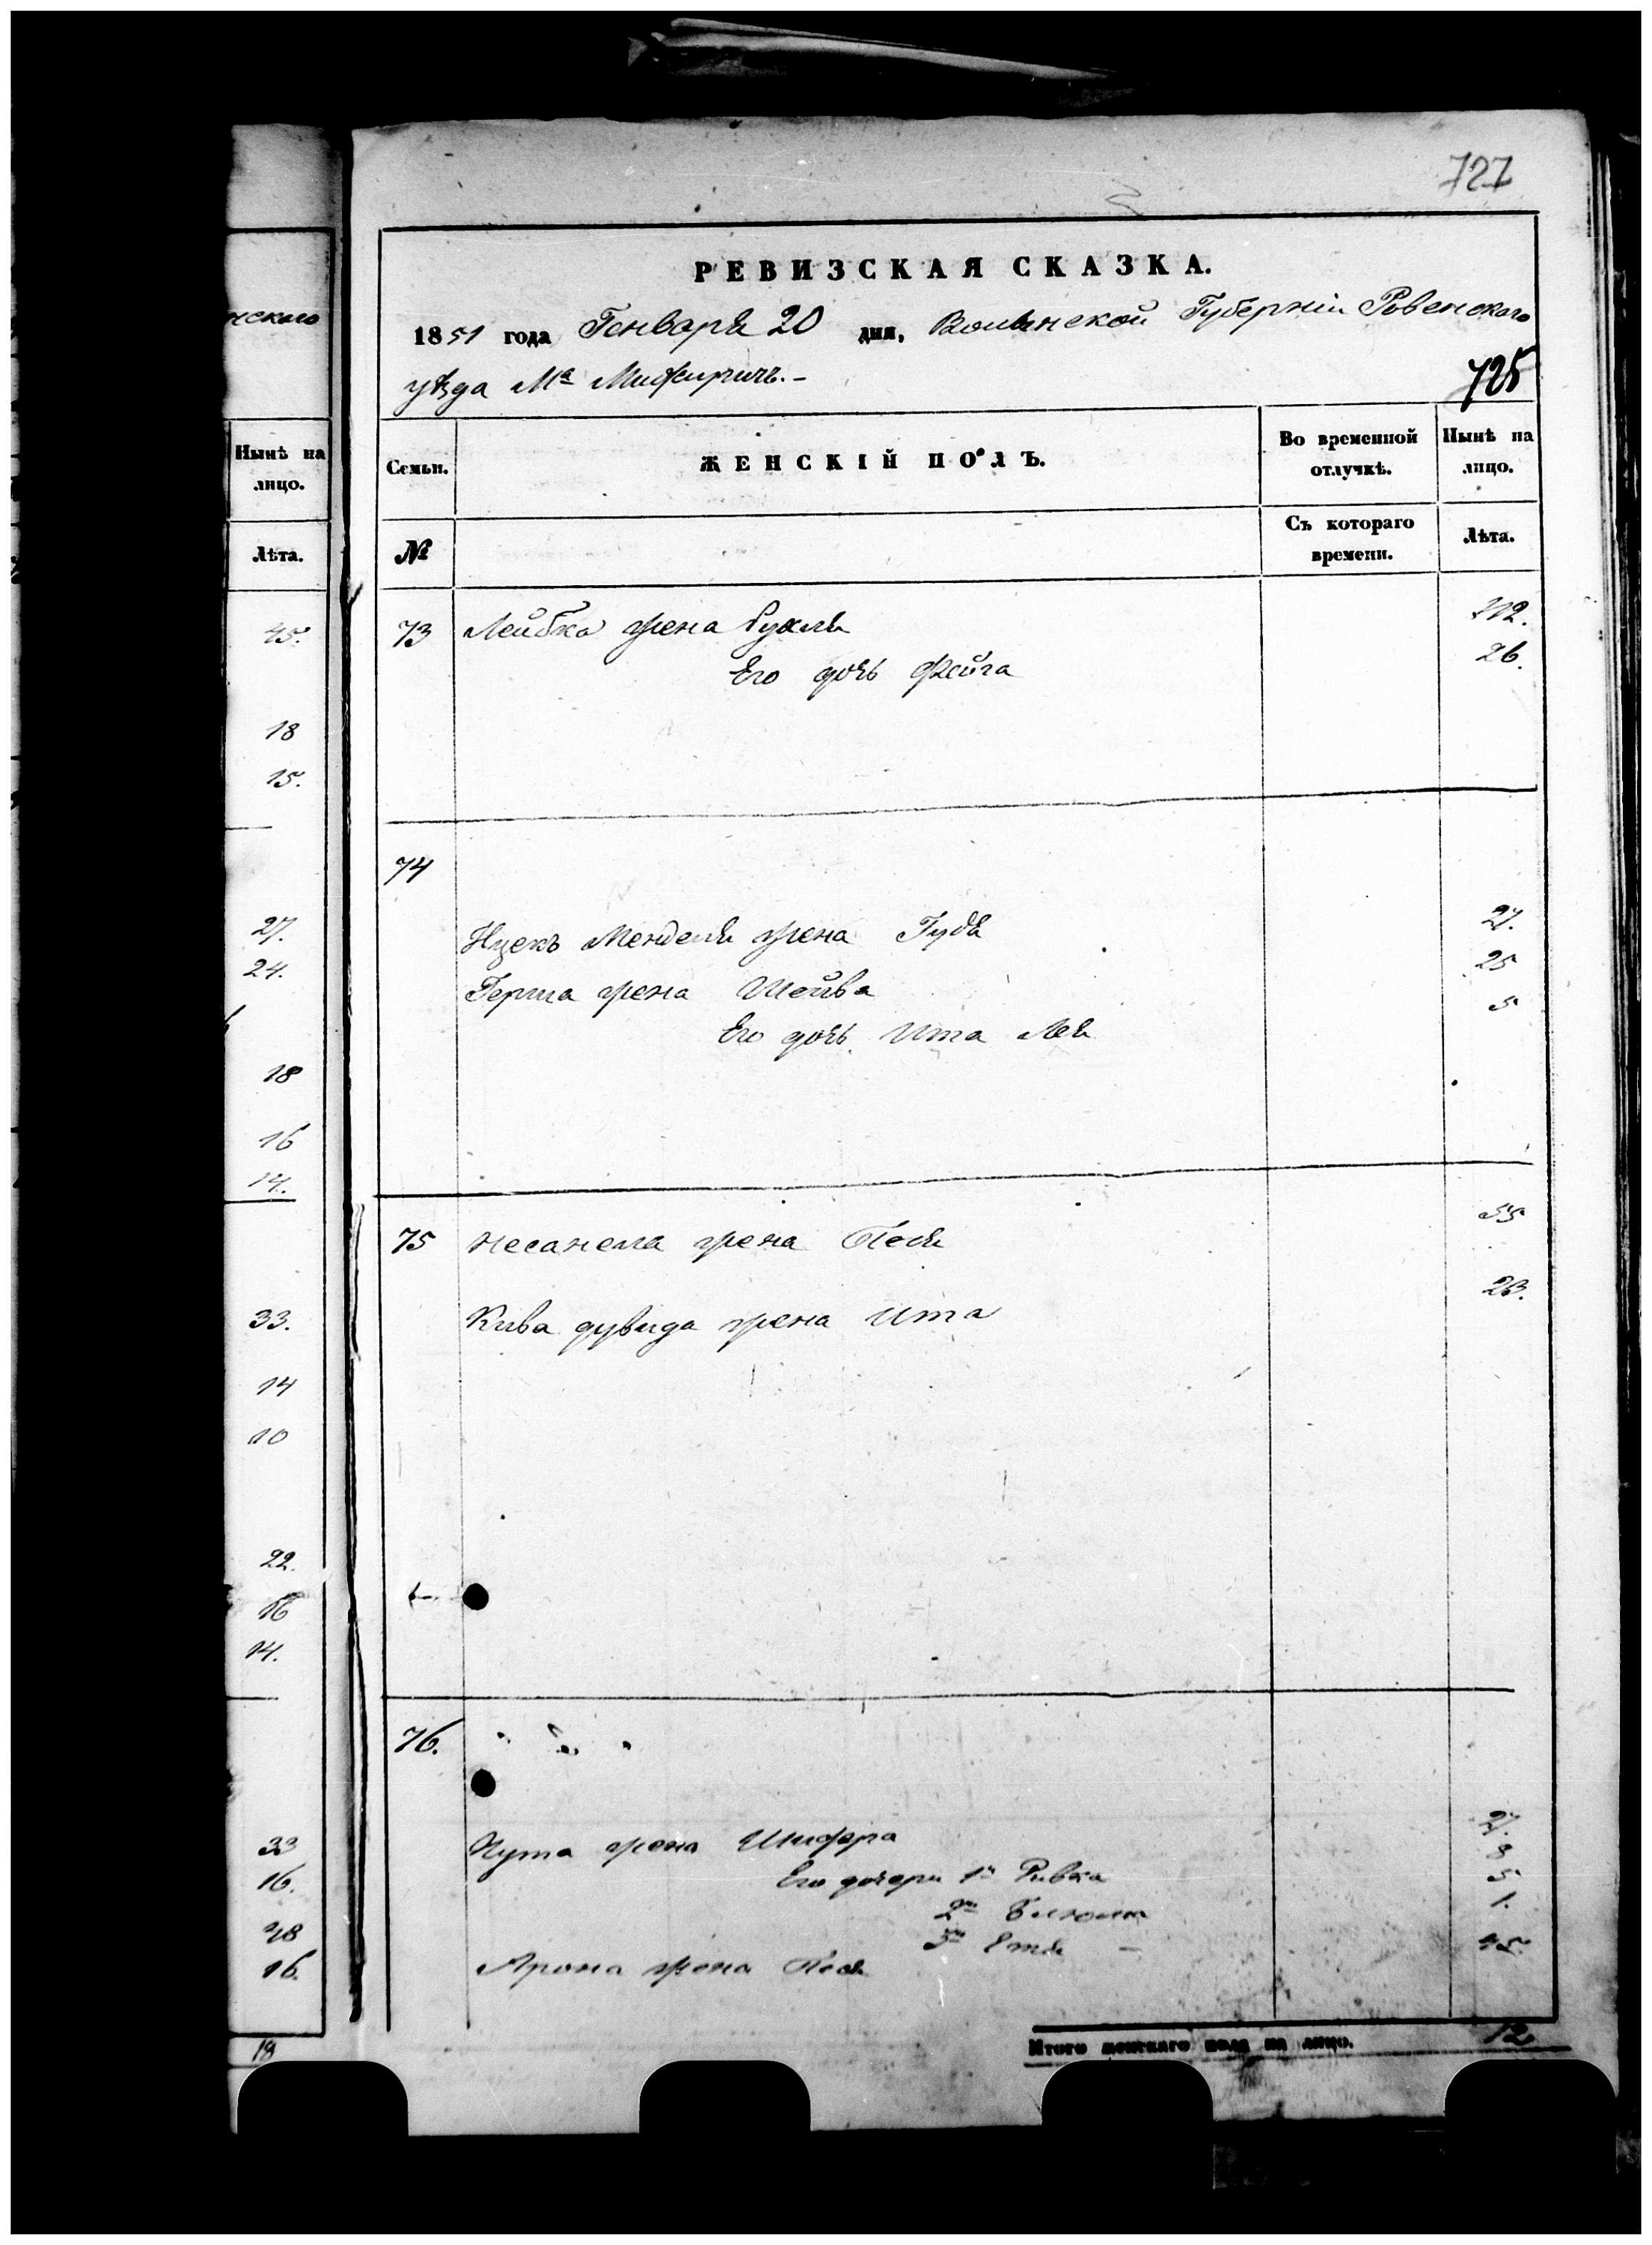 727
нскаго
РЕВИЗСКАЯ СКАЗКА.
1851 года Генваря 20 дня, Волынской Губерніи Ровенскаго
уѣзда Мª Межиричъ.-
725
Нынѣ на лицо.
Лѣта.
45.
18
15.
27.
24.
18
16
14.
33.
14
10
22.
16
14.
33
16.
48
16.
18
Семьи.
ЖЕНСКІЙ ПОЛЪ.
Во временной отлучкѣ.
Нынѣ на лицо.
№
Съ котораго времени.
Лѣта.
73 Лейбка жена Рухля 42.
Его дочь Фейга 26.
74
Ицекъ Менделя жена Гудя 27.
Герша жена Шейва 25
Его дочь Ита Лея 5
75 Несанела жена Песя 55
Кива дувида жена Ита 23.
76.
жена Шифра 27.
Его дочери 1я Ривка 8
2я 5
3я Етя 1.
Арона жена Песя 45.
Итого женскаго пола на лицо. 12